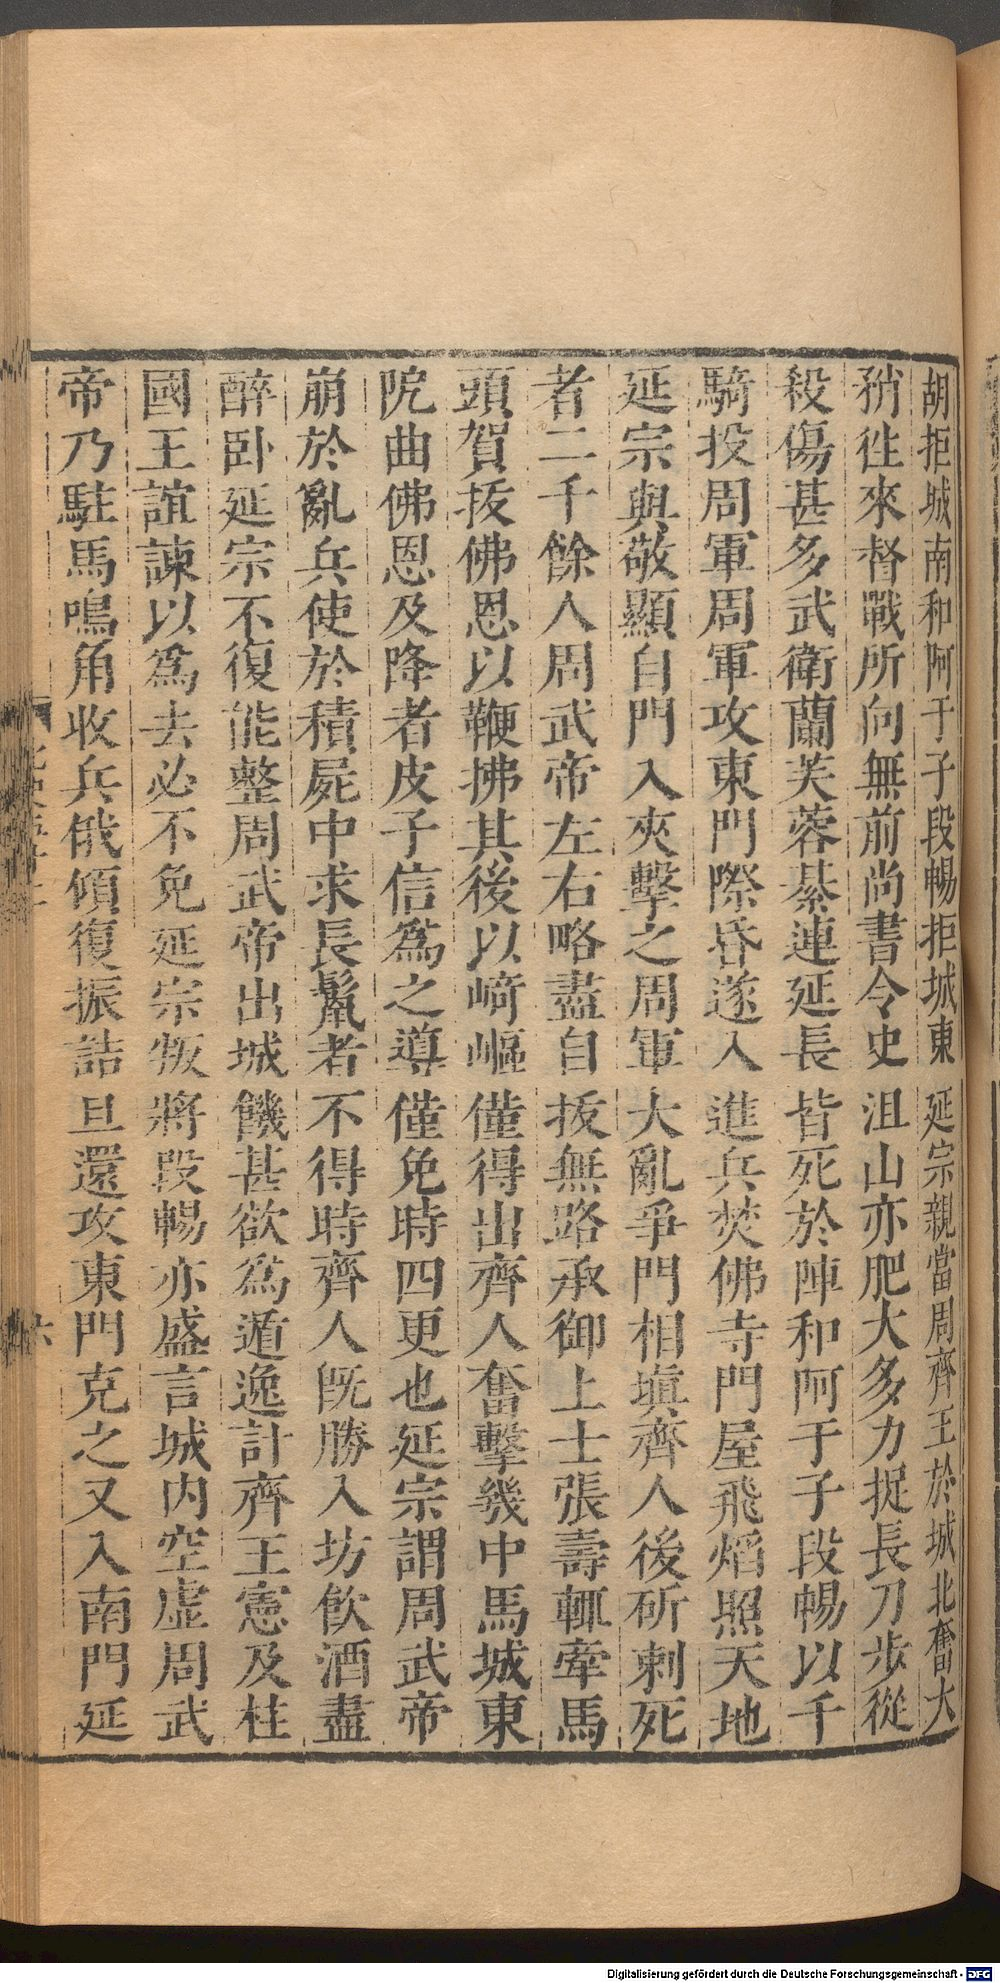 胡拒城南和阿于子段暢拒城東延宗親當周齊王於城北奮大
矟徃來督戰所向無前尚書令史沮山亦肥大多力捉長刀步從
殺傷甚多武衛蘭芙蓉綦連延長皆死於陣和阿于子段暢以千
騎投周軍周軍攻東門際昏遂入進兵焚佛寺門屋飛熖照天地
延宗與敬顯自門入夾擊之周軍大亂爭門相塡齊人後斫刺死
者二千餘人周武帝左右略盡自拔無路承御上士張壽輒牽馬
頭賀拔佛恩以鞭拂其後以﨑嶇僅得出齊人奮擊幾中馬城東
阨曲佛恩及降者皮子信爲之導僅免時四更也延宗謂周武帝
崩於亂兵使於積屍中求長鬣者不得時齊人既勝入坊飲酒盡
醉卧延宗不復能整周武帝出城饑甚欲爲遁逸計齊王憲及柱
國王誼諫以爲去必不免延宗叛將段暢亦盛言城内空虛周武
帝乃駐馬鳴角收兵俄傾復振詰旦還攻東門克之又入南門延
六
Digitalisierung gefördert durch die Deutsche Forschungsgemeinschaft - DFG